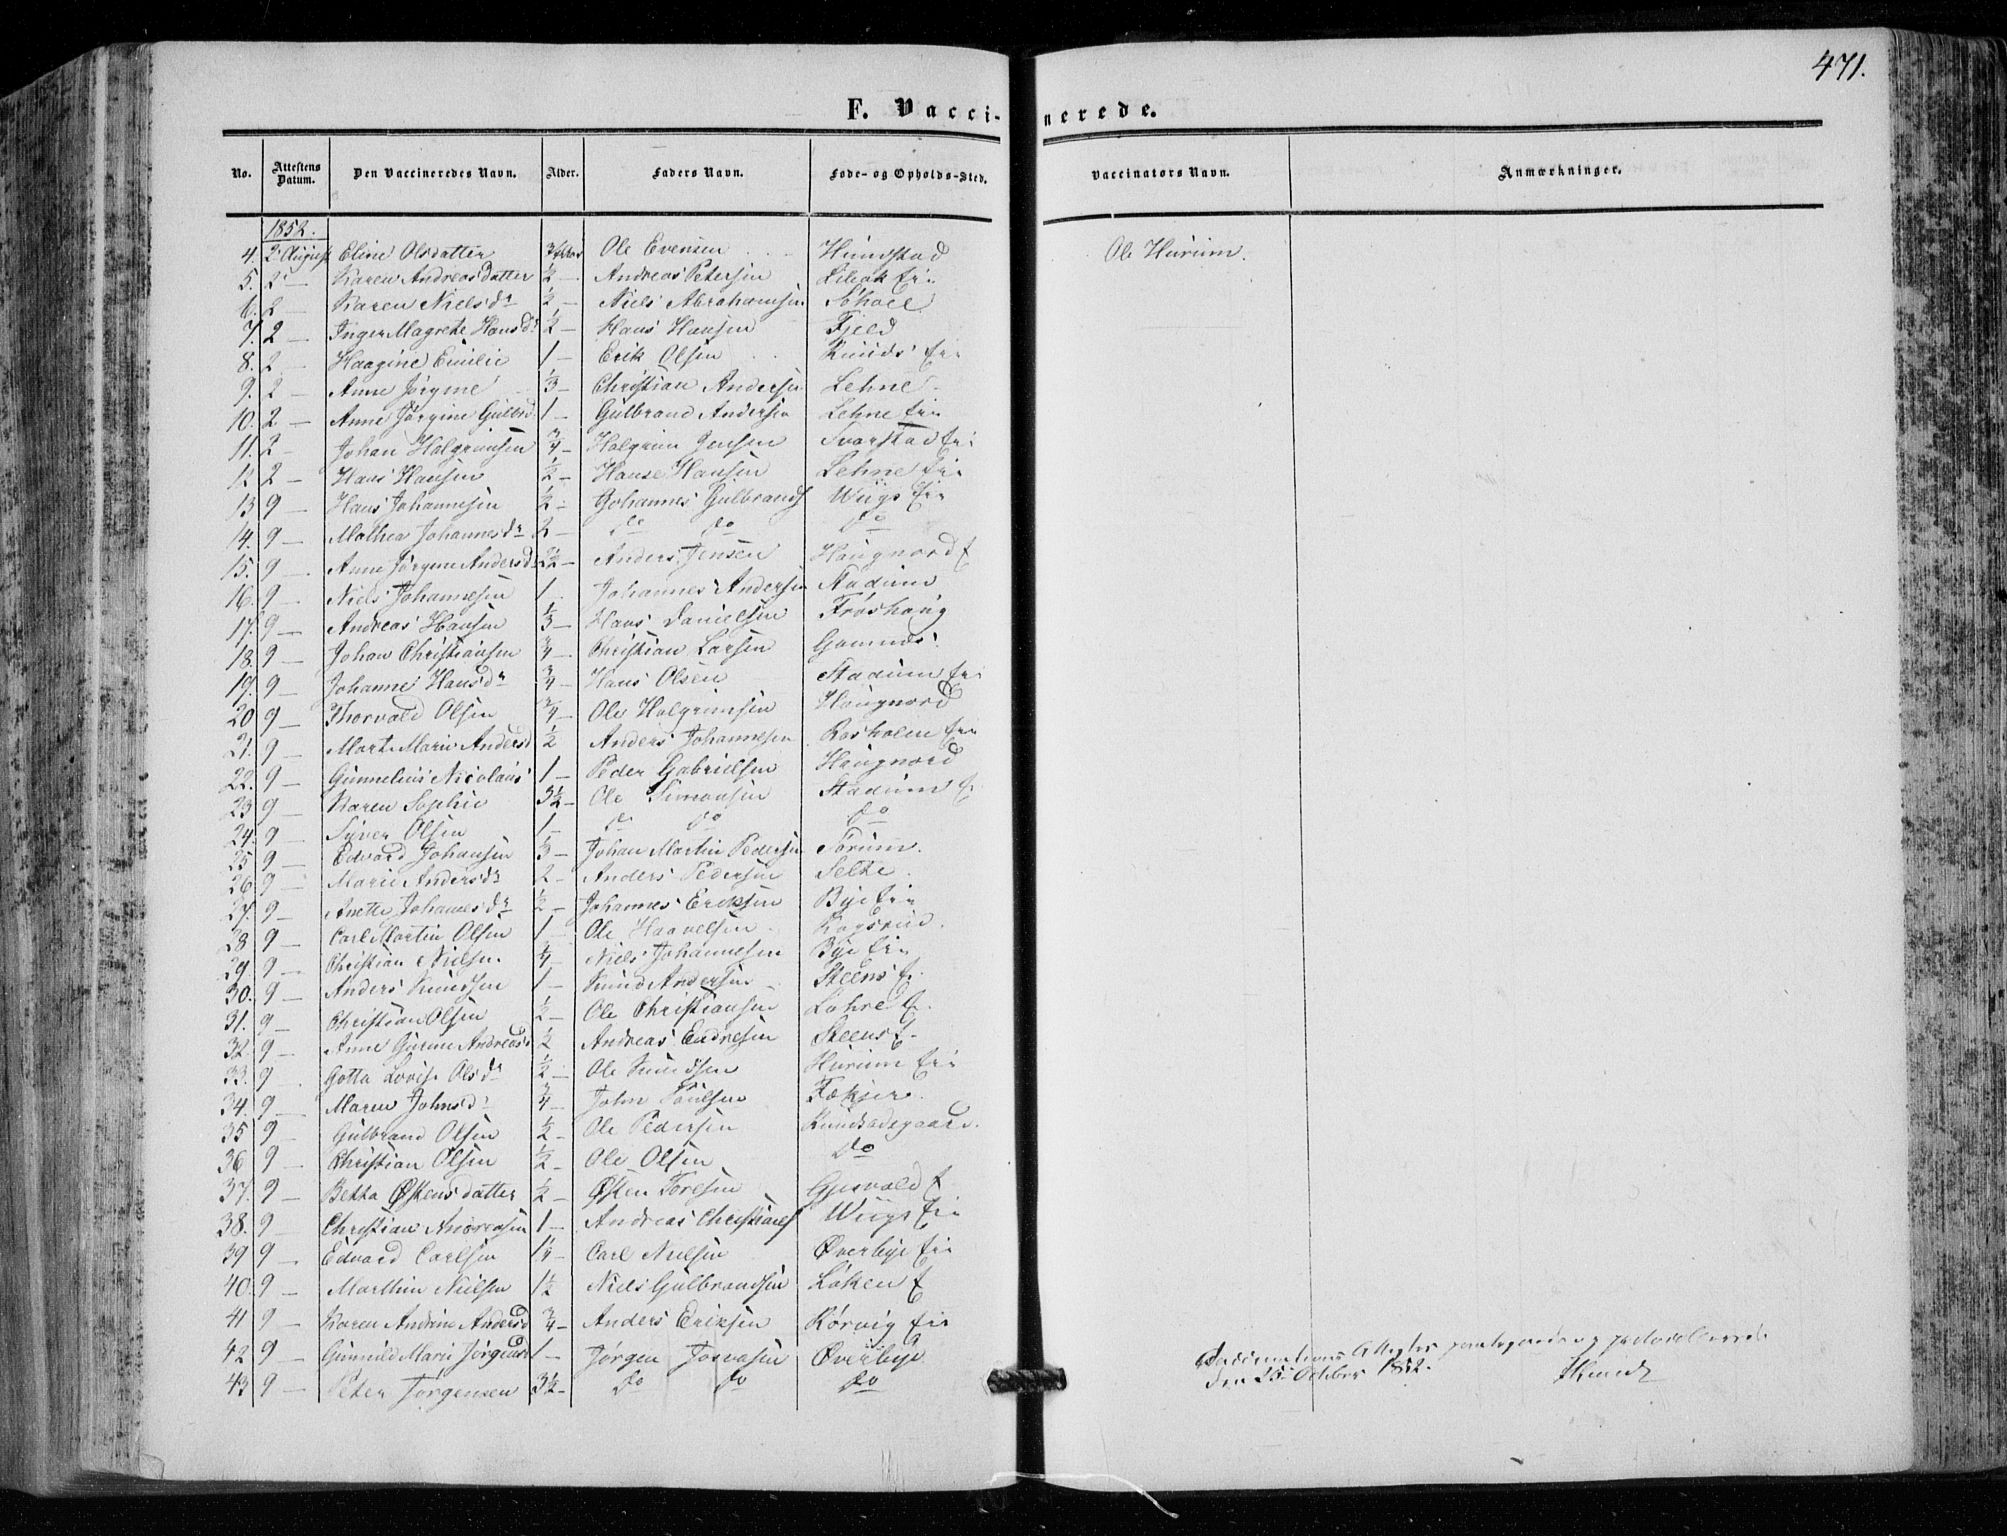 471.
F. Vaccinerede.
No. Attestens Datum. Den Vaccineredes Navn. Alder. Faders Navn. Føde- og Opholds-Sted. Vaccinators Navn. Anmærkninger.
1852.
4. 2 August Eline Olsdatter 3/4 Aar Ole Evensen Hundstad Ole Hurum.
5. 2 — Karen Andreasdatter 1/2 — Andreas Petersen
6. 2 Karen Nielsdr 1/2 — Niels Abrahamsen
7. 2 — Inger Magrete Hansdr 1/2 — Hans Hansen Fjeld
8. 2 Haagine Emilie 1 — Erik Olsen
9. 2 — Anne Jørgine 1/3 — Christian Andersen Lehne
10. 2 — Anne Jørgine Gulbrd 1 — Gulbrand Andersen Lehne
11. 2 — Johan Halgrimsen 3/4 — Halgrim Jensen Svarstad
12 2 — Hans Hansen 1/2 — Hanse Hansen Lehne
13 9 — Hans Johannesen 1/2 — Johannes Gulbrands Wiigs
14. 9 — Mathea Johannesdr 2 — do do do
15. 9 — Anne Jørgine Andersd 2 1/2 — Anders Jensen Haugnord
16. 9 — Niels Johannesen 1 Johannes Andersen Stadum
17. 9 — Andreas Hansen 1/3 — Hans Danielsen Frøshaug
18. 9 — Johan Christiansen 3/4 — Christian Larsen Gomnes
19. 9 — Johanne Hansdr 3/4 — Hans Olsen Stadum
20 9 — Thorvald Olsen 3/4 — Ole Halgrimsen Haugnord
21. 9 — Marte Marie Andersd 1/2 Anders Johannesen Rosholm
22. 9 — Gunnelius Nicolaus 1 — Peder Gabrielsen Haugnord
23 9 — Karen Sophie 3 1/2 — Ole Simonsen Stadum
24. 9 — Syver Olsen 1 — do do do
25 9 — Edvard Johansen 1/3 — Johan Martin Pedersen Sørum.
26 9 — Marie Andersdr 2 — Anders Pedersen Selte
27. 9 — Anette Johannesdr 1/2 — Johannes Eriksen Bye
28 9 — Carl Martin Olsen 1 — Ole Haavelsen
29. 9 — Christian Nielsen 1/4 — Niels Johannesen Bye
30. 9 — Anders Knudsen 1 — Knud Andersen Steens
31. 9 — Christian Olsen 1/2 — Ole Christiansen Lohre
32. 9 — Anne Gurine Andreasd 1/2 Andreas Endresen Steens
33. 9 Gotta Lovise Olsdr 1/2 — Ole Knudsen Hurum
34. 9 — Maren Johnsdr 3/4 — John Paulsen Fækjer.
35 9 Gulbrand Olsen 1/2 — Ole Pedersen
36 9 — Christian Olsen 1/2 — Ole Olsen do
37. 9 — Betta Østensdatter 1/2 — Østen Toresen Gjesvald
38. 9 — Christian Andreasen 1 — Andreas Christians Wiigs
39 9 — Edvard Carlsen 1 1/4 — Carl Nielsen Øverbye
40. 9 — Marthin Nielsen 1 1/2 Niels Gulbrandsen Løken
41 9 — Karen Andrine Andersd 3/4 — Anders Eriksen Kørvig
42 9 — Gunnild Marie Jørgensd 1 — Jørgen Øverbye
43 9 — Peter Jørgensen 3 1/2 — do do do
Vaccinations Attester
den 25 October 1852.